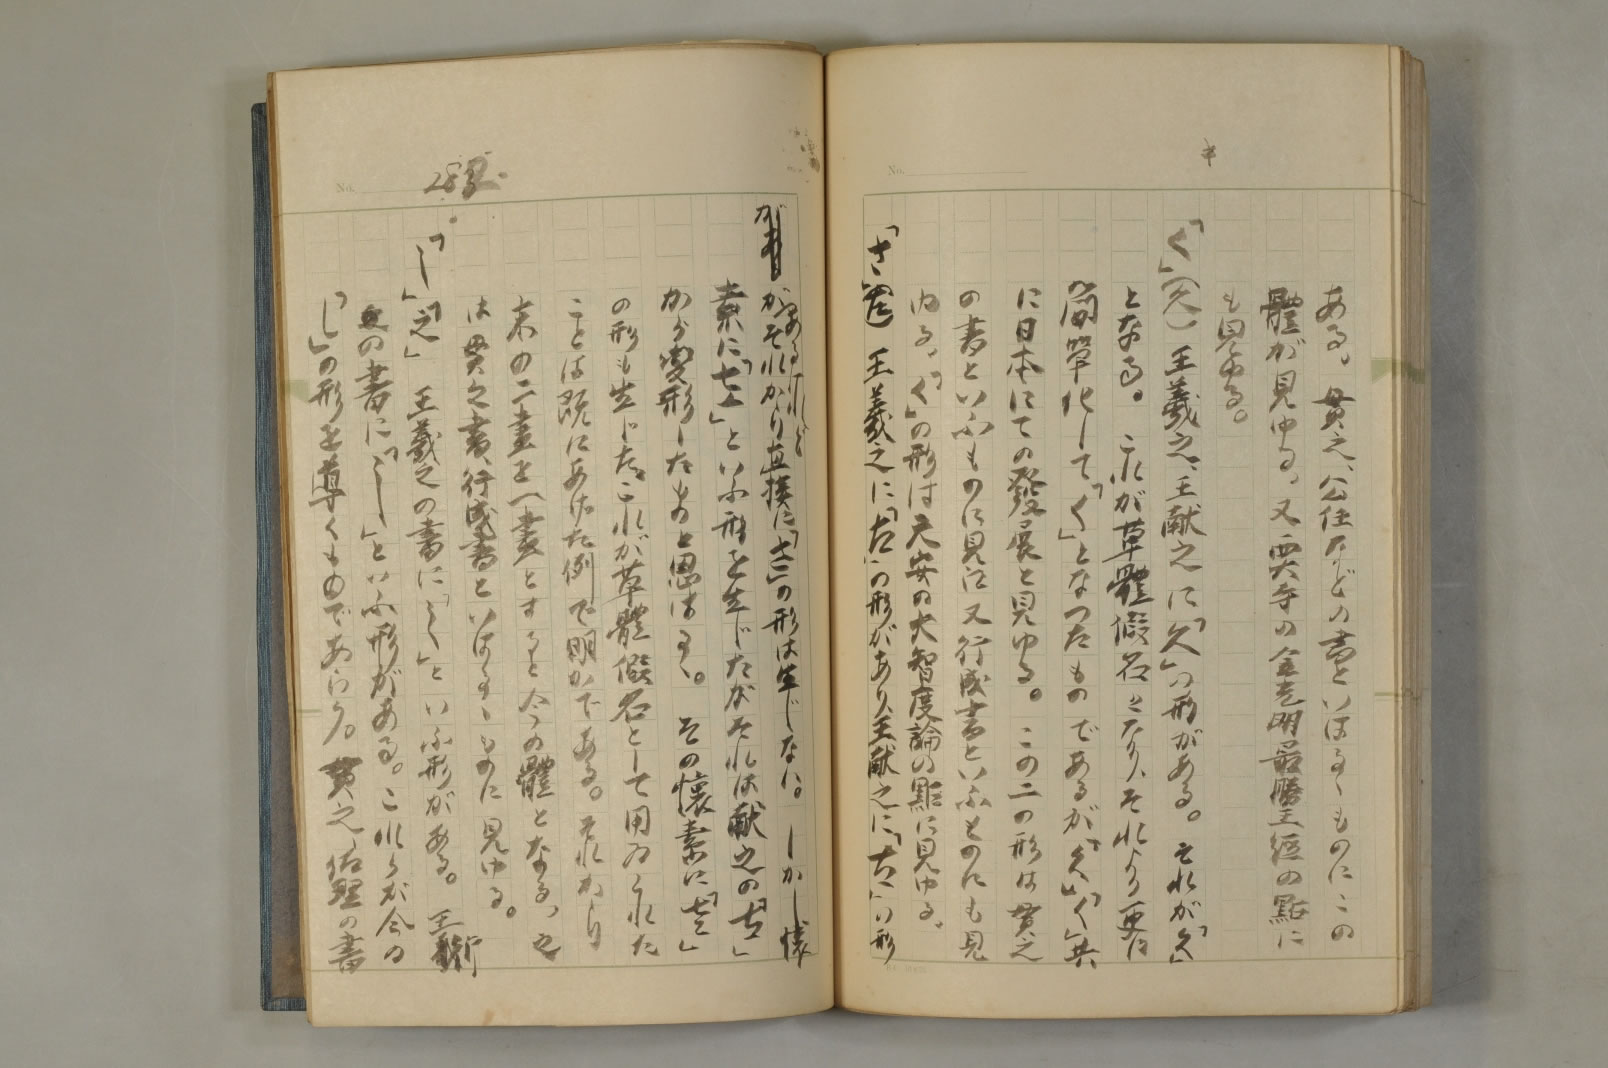 ある、貫之、公任などの書といはるゝものにこの
體が見ゆる。又西大寺の金光明最勝王經の點に
も見ゆる。
「く」(久) 王羲之、王献之に「久」の形がある。それが「久」
となる。これが草體假名となり、それより更に
簡單化して「く」となつたものであるが「久」「く」共
に日本にての發展と見ゆる。この二の形は貫之
の書といふものに見江又行成書といふものにも見
ゆる、「く」の形は天安の大智度論の點に見ゆる、
「さ」(左) 王羲之に「左」の形があり、王献之に「左」の形
が
があるけれど
がそれから直接に「さ」の形は生じない。しかし懷
素に「さ」といふ形を生じたがそれは献之の「左」
から變形したものと思はるゝ。その懷素に「さ」
の形も生じた。これが草體假名として用ゐられた
ことは既にあげた例で明かである。それから
末の二畫を一畫とすると今の體となる、之
は貫之書、行成書といはるゝものに見ゆる。
「し」「之」 王羲之の書に「之」といふ形がある。王獻
之の書に「し」といふ形がある。これらが今の
「し」の形を導くものであらう。貫之、佐理の書
No.
No.